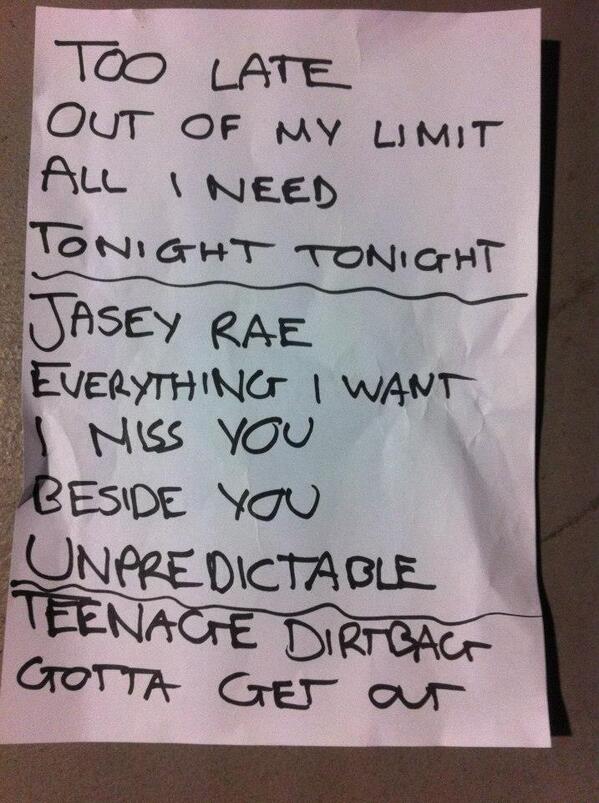 TOO LATE
OUT OF MY LIMIT
ALL I NEED
TONIGHT TONIGHT
JASEY RAE
EVERYTHING I WANT
I MISS YOU
BESIDE YOU
UNPREDICTABLE
TEENAGE DIRTBAG
GOTTA GET OUT